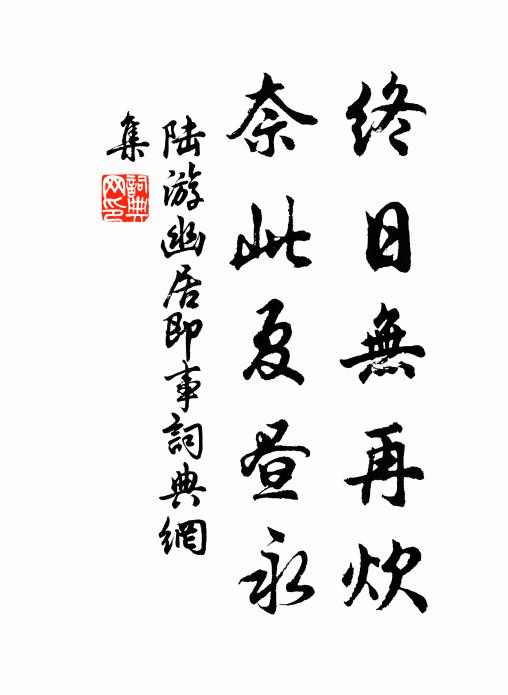 終日無再炊
奈此夏昼永
陸游幽居即事詞典網
集
詞典
网印